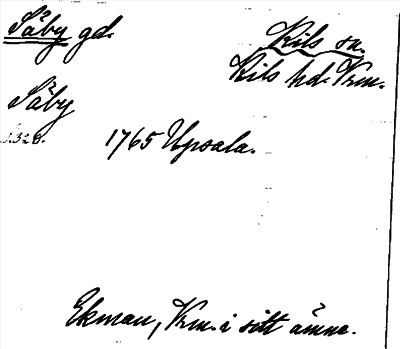 Säby gd.
Kils sn.
Kils hd. Vrm.
Säby
s. 328.
1765 Upsala.
Ekman, Vrm. i sitt ämne.